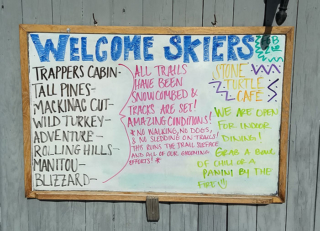 WELCOME SKIERS
TRAPPERS CABIN-
TALL PINES-
MACKINAC CUT-
WILD TURKEY-
ADVENTURE-
ROLLING HILLS-
MANITOU-
BLIZZARD-
ALL TRAILS
HAVE BEEN
SNOWCOMBED &
TRACKS ARE SET!
AMAZING CONDITIONS!
* NO WALKING, NO DOGS,
& NO SLEDDING ON TRAILS!
THIS RUINS THE TRAIL SURFACE
AND ALL OF OUR GROOMING
EFFORTS! *
STONE
TURTLE
CAFE
WE ARE OPEN
FOR INDOOR
DINING!
GRAB A BOWL
OF CHILI OR A
PANINI BY THE
FIRE!